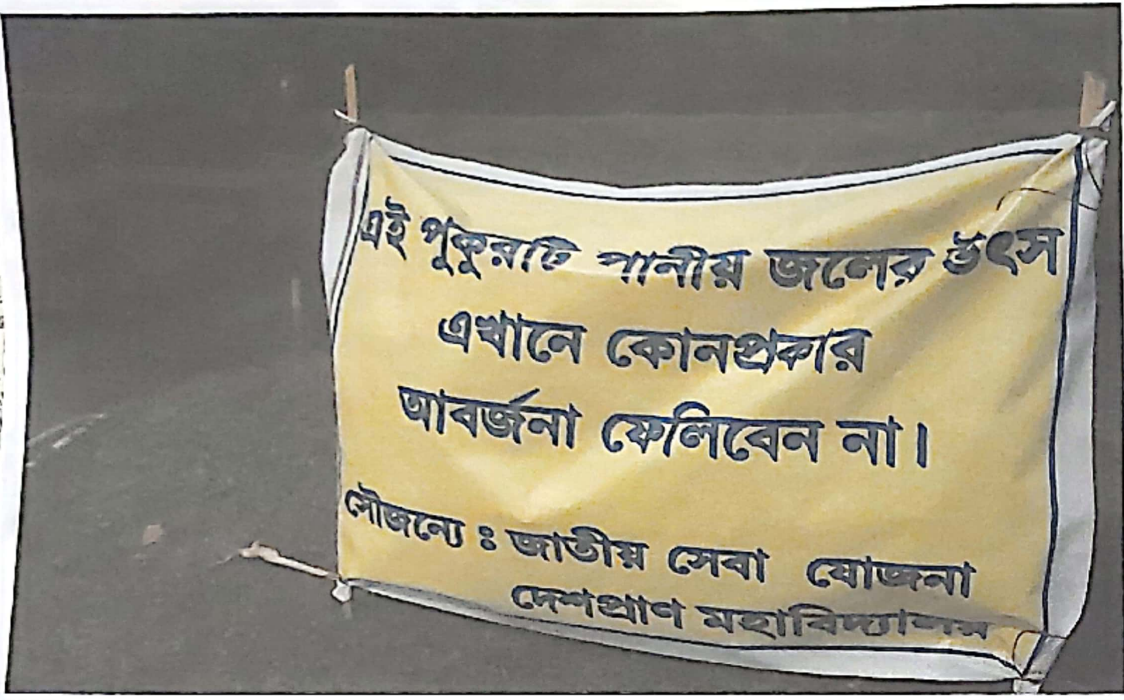 এই পুকুরটি পানীয় জলের উৎস
এখানে কোনপ্রকার
আবর্জনা ফেলিবেন না।
সৌজন্যে ঃ জাতীয় সেবা যোজনা
দেশপ্রাণ মহাবিদ্যালয়